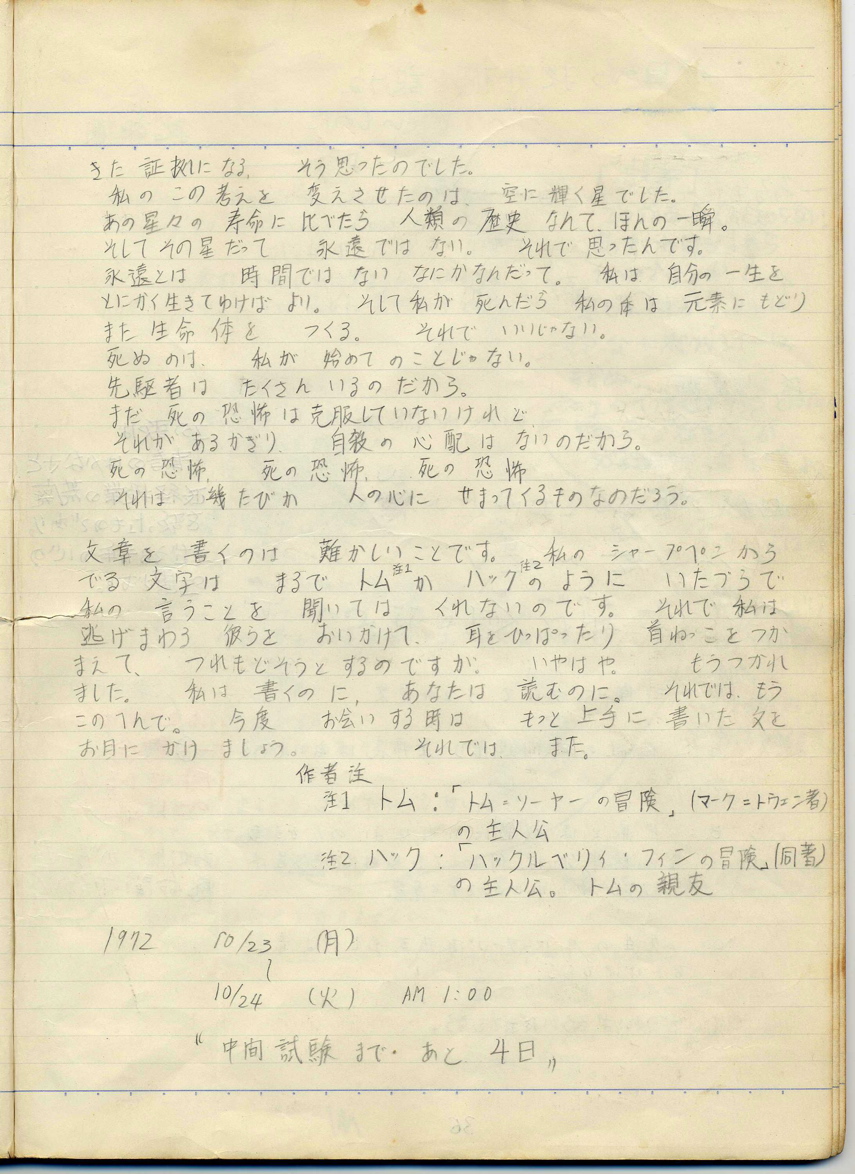 きた 証拠になる、 そう思ったのでした。
私の この考えを 変えさせたのは、空に輝く星でした。
あの星々の 寿命に 比べたら 人類の 歴史 なんて、ほんの一瞬。
そしてその星だって 永遠では ない。 それで 思ったんです。
永遠とは 時間では ない なにかなんだって。 私は 自分の 一生を
とにかく生きてゆけば よい。 そして私が 死んだら 私の体は 元素に もどり
また 生命 体を つくる。 それで いいじゃない。
死ぬ のは、 私が 始めて のことじゃない。
先駆者は たくさん いるの だから。
まだ 死の 恐怖は克服していないけれど、
それが あるかぎり、 自殺の 心配は ないのだから。
死の 恐怖、 死の 恐怖、 死の 恐怖
それは 幾たびか 人の心に せまってくるものなのだろう。
文章を 書くのは 難かしいことです。 私の シャープペンから
でる 文字は まるで トム注1か ハック注2のように いたづらで
私の 言うことを 聞いては くれないのです。 それで 私は
逃げまわる 彼らを おいかけて、 耳をひっぱったり 首ねっこをつか
まえて、 つれもどそうと するのですが。 いやはや。 もうつかれ
ました。 私は 書くのに、 あなたは 読むのに。 それでは、もう
このへんで。 今度 お会いする時は もっと 上手に 書いた 文を
お目に かけ ましょう。 それでは また。
作者注
注1 トム:「トム=ソーヤーの冒険」(マーク=トウェン著)
の 主人公
注2 ハック:「ハックルベリィ・フィンの冒険」(同著)
の主人公。 トムの 親友
1972 10/23 (月)
〜
10/24 (火) AM 1:00
“中間試験まで・あと 4日„